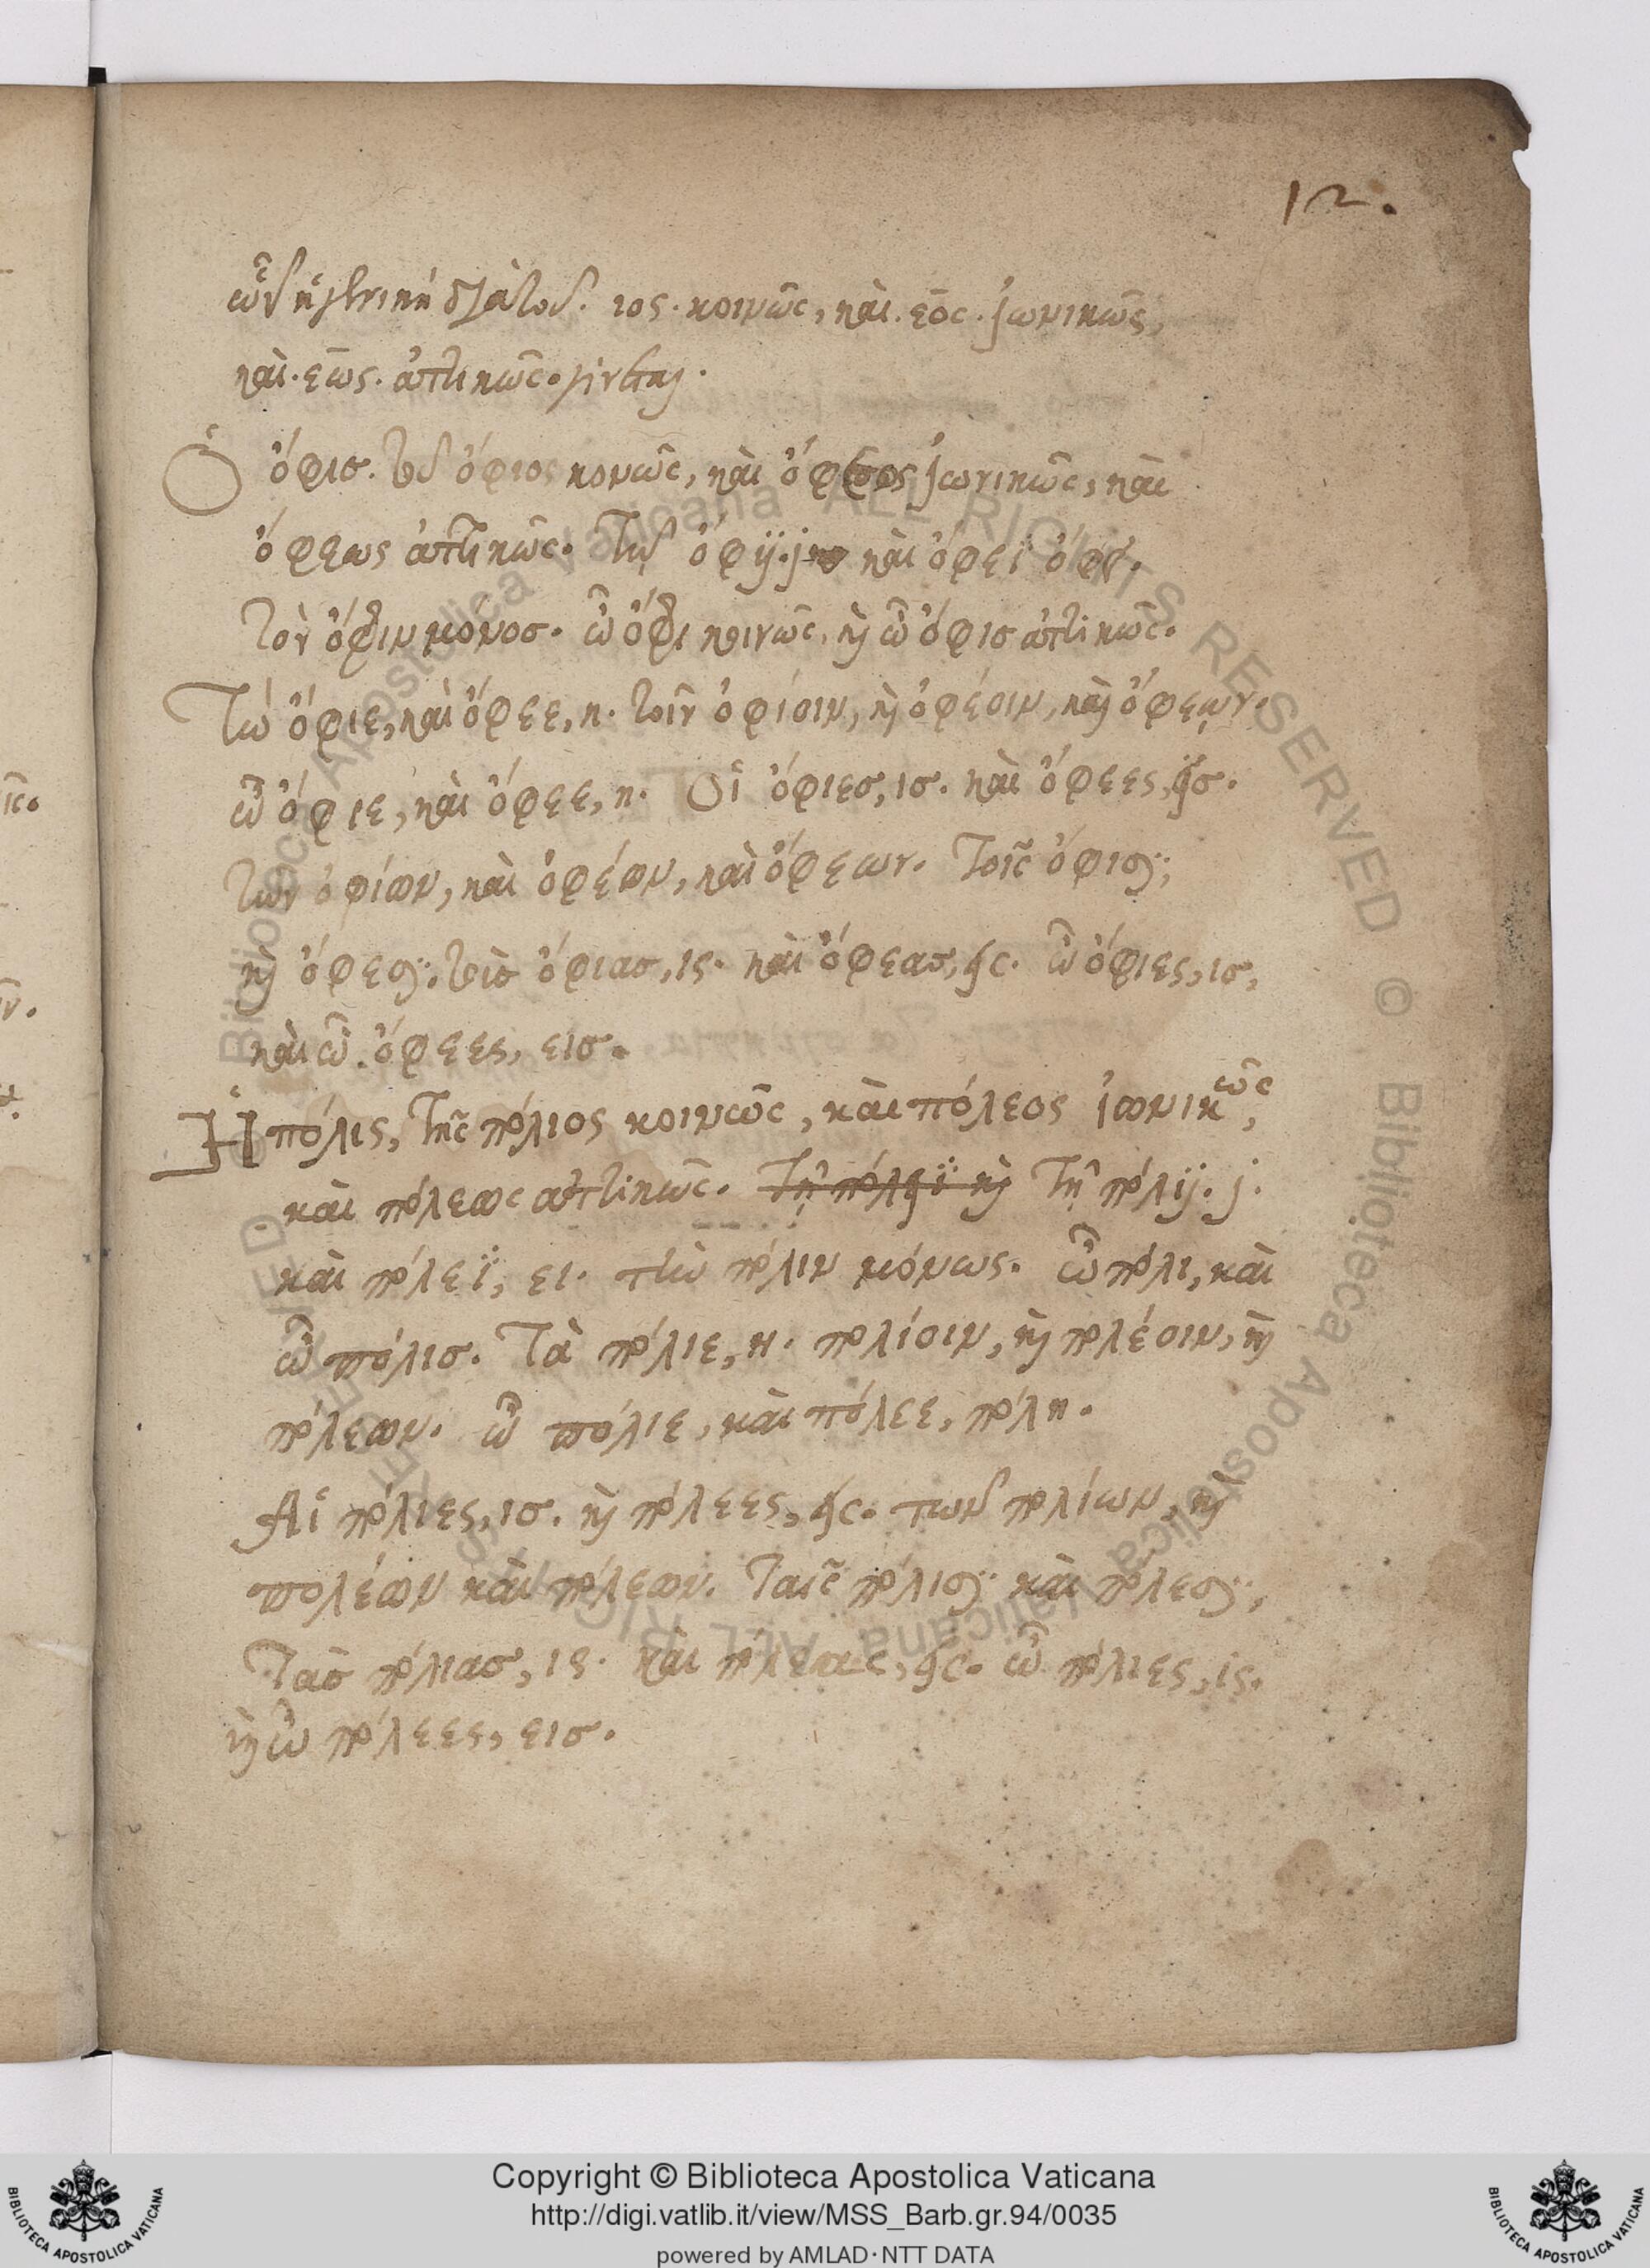 12.
ὧν ἡ γενικὴ διὰ τοῦ. ιος. κοινῶς, καὶ. εος. ἰωνικῶς,
καὶ. εως. ἀττικῶς. γίνεται.
Ὁ ὄφισ. τοῦ ὄφιος κονῶς, καὶ ὄφεος ἰωνικῶς, καὶ
ὄφεως ἀττικῶς. τῷ ὄφιϊ. ι καὶ ὄφεϊ ὄφει.
τὸν ὄφιν μόνοσ. ὦ ὄφι κοινῶς, καὶ ὦ ὄφισ ἀττικῶς.
Τὼ ὄφιε, καὶ ὄφεε, η. τοῖν ὀφίοιν, καὶ ὀφέοιν, καὶ ὄφεῳν.
ὦ ὄφιε, καὶ ὄφεε, η. Οἱ ὄφιεσ, ισ. καὶ ὄφεες, εισ.
τῶν ὀφίων, καὶ ὀφέων, καὶ ὄφεων. τοῖς ὄφισι;
καὶ ὄφεσι. τοὺσ ὄφιασ, ις. καὶ ὄφεασ, εις. ὦ ὄφιες, ισ,
καὶ ὦ. ὄφεες, εισ.
Ἡ πόλις, τῆς πόλιος κοινῶς, καὶ πόλεος ἰωνικῶς,
καὶ πόλεως ἀττικῶς. τῇ πόλεϊ καὶ τῇ πόλιϊ. ι.
καὶ πόλεϊ, ει. τὴν πόλιν μόνως. ὦ πόλι, καὶ
ὦ πόλισ. Τὰ πόλιε, η. πολίοιν, καὶ πολέοιν, καὶ
πόλεων. ὦ πόλιε, καὶ πόλεε, πόλη.
Αἱ πόλιες, ισ. καὶ πόλεες, εις. τῶν πολίων, καὶ
πολέων καὶ πόλεων. ταῖς πόλισι καὶ πόλεσι;
Τὰσ πόλιασ, ις. καὶ πόλεας, εις. ὦ πόλιες, ις.
καὶ ὦ πόλεες, εισ.
Copyright © Biblioteca Apostolica Vaticana
http://digi.vatlib.it/view/MSS_Barb.gr.94/0035
powered by AMLAD·NTT DATA